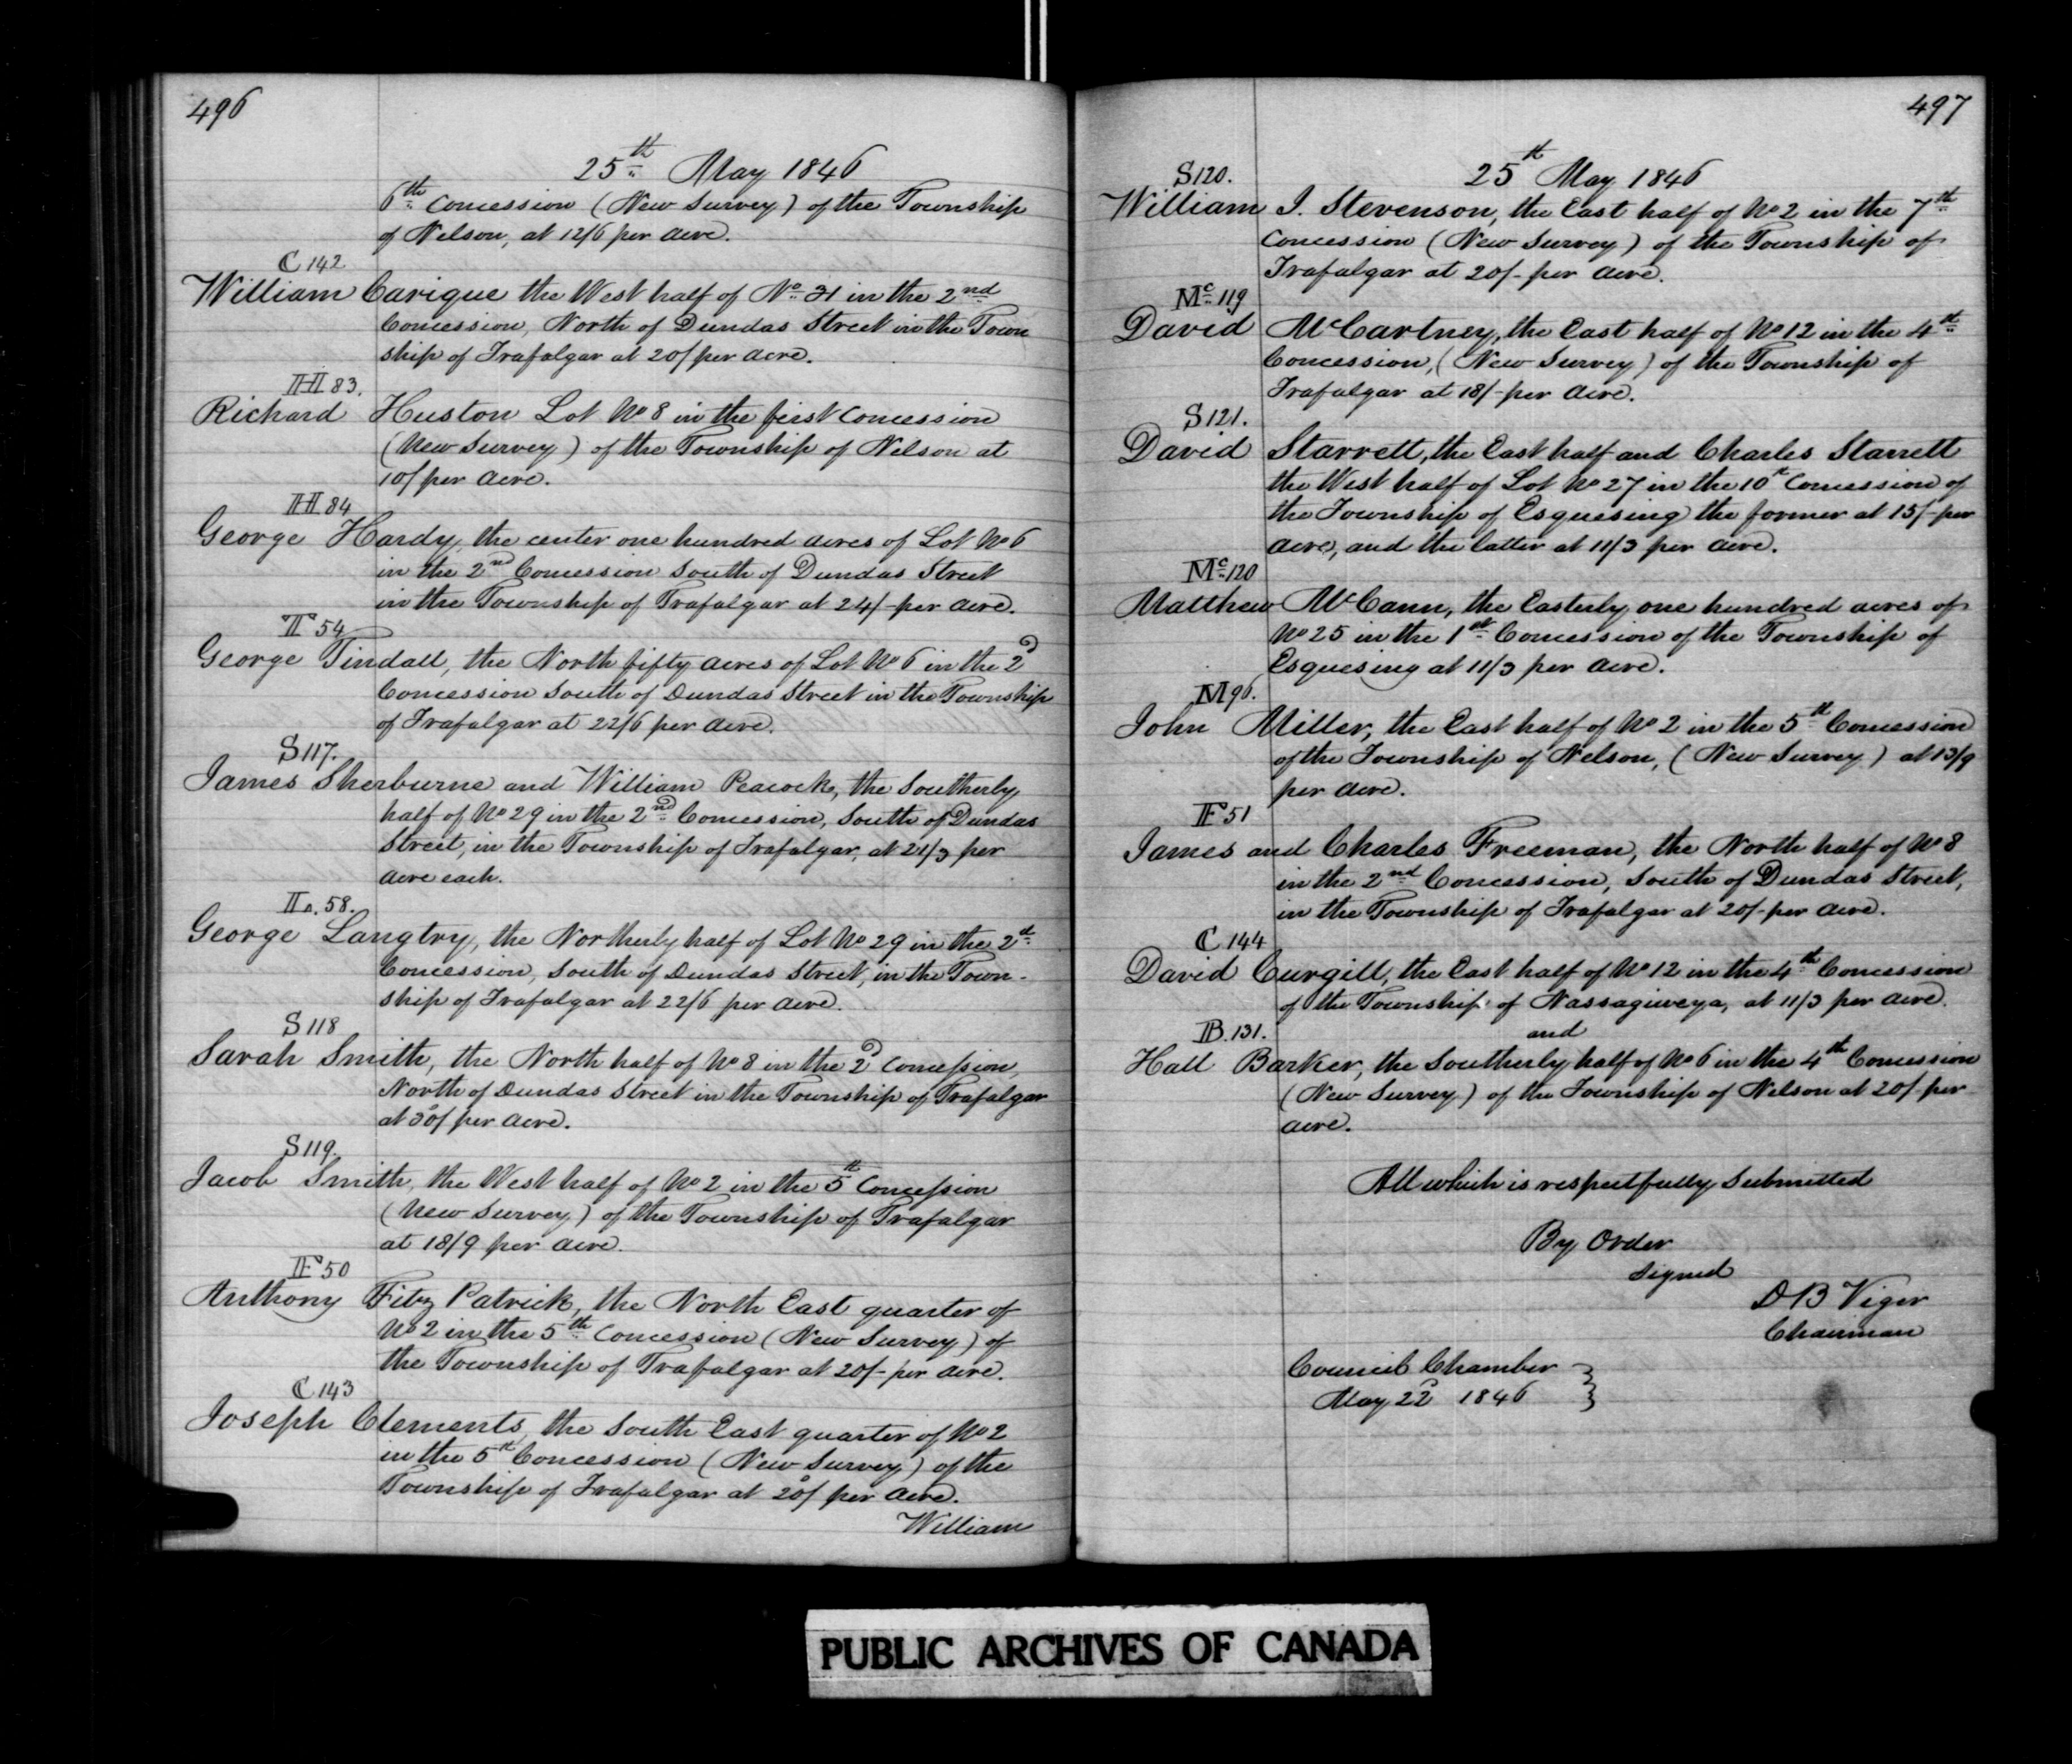 496
25th May 1846
6th Concession (New Survey) of the Township
of Nelson, at 12/6 per acre.
C 142
William Carique the West half of No 31 in the 2nd
Concession, North of Dundas Street in the Town
ship of Trafalgar at 20/ per acre.
H 83.
Richard Huston Lot No 8 in the first Concession
(New Survey) of the Township of Nelson at
10/ per acre.
H 84
George Hardy, the center one hundred acres of Lot No 6
in the 2nd Concession South of Dundas Street
in the Township of Trafalgar at 24/- per acre.
T 54
George Tindall, the North fifty acres of Lot No 6 in the 2d
Concession South of Dundas Street in the Township
of Trafalgar at 22/6 per acre.
S 117.
James Sherburne and William Peacock, the Southerly
half of No 29 in the 2nd Concession, South of Dundas
Street, in the Township of Trafalgar, at 21/3 per
acre each.
L. 58.
George Langtry, the Northerly half of Lot No 29 in the 2d
Concession, South of Dundas Street, in the Town-
ship of Trafalgar at 22/6 per acre.
S 118
Sarah Smith, the North half of No 8 in the 2d Concession
North of Dundas Street in the Township of Trafalgar
at 30/ per acre.
S 119.
Jacob Smith, the West half of No 2 in the 5th Concession
(New Survey) of the Township of Trafalgar
at 18/9 per acre.
F 50
Anthony Fitz Patrick, the North East quarter of
No 2 in the 5th Concession (New Survey) of
the Township of Trafalgar at 20/- per acre.
C 143
Joseph Clements, the South East quarter of No 2
in the 5th Concession (New Survey) of the
Township of Trafalgar at 20/ per acre.
William
497
25th May 1846
S 120.
William J. Stevenson, the East half of No 2 in the 7th
Concession (New Survey) of the Township of
Trafalgar at 20/- per acre.
Mc 119
David McCartney, the East half of No 12 in the 4th
Concession, (New Survey) of the Township of
Trafalgar at 18/- per acre.
S 121.
David Starrett, the East half and Charles Starrett
the West half of Lot No 27 in the 10th Concession of
the Township of Esquesing the former at 15/- per
acre, and the latter at 11/3 per acre.
Mc 120
Matthew McCann, the Easterly one hundred acres of
No 25 in the 1st Concession of the Township of
Esquesing at 11/3 per acre.
M 96.
John Miller, the East half of No 2 in the 5th Concession
of the Township of Nelson, (New Survey) at 13/9
per acre.
F 51
James and Charles Freeman, the North half of No 8
in the 2nd Concession, South of Dundas Street,
in the Township of Trafalgar at 20/- per acre.
C 144
David Curgill, the East half of No 12 in the 4th Concession
of the Township of Nassagiweya, at 11/3 per acre.
and
B. 131.
Hall Barker, the Southerly half of No 6 in the 4th Concession
(New Survey) of the Township of Nelson at 20/- per
acre.
All which is respectfully Submitted
By Order
Signed
D B Viger
Chairman
Council Chamber
May 22d 1846
PUBLIC ARCHIVES OF CANADA